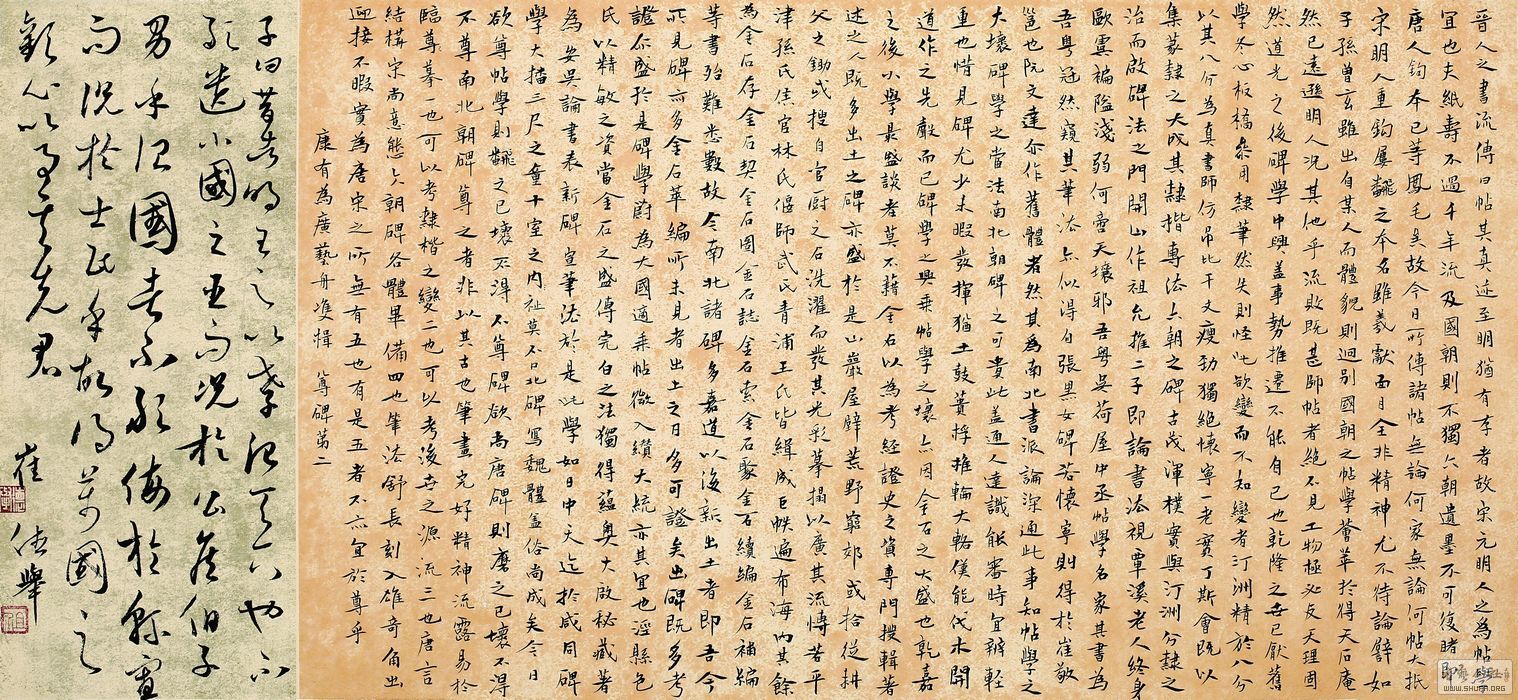 晉人之書流傳曰帖其真迹至明猶有存者故宋元明人之為帖學
宜也夫紙壽不過千年流及國朝則不獨六朝遺墨不可復睹即
唐人鈎本已等鳳毛矣故今日所傳諸帖無論何家無論何帖大抵
宋明人重鈎屢翻之本名雖羲獻面目全非精神尤不待論譬如
子孫曾玄雖出自某人而體貌則迥別國朝之帖學薈萃於得天石庵
然已遠遜明人況其他乎流敗既甚師帖者絕不見工物極必反天理固
然道光之後碑學中興蓋事勢推遷不能自已也乾隆之世已厭舊
學冬心板橋參用隸筆然失則怪此欲變而不知變者汀洲精於八分
以其八分為真書師仿吊比干文瘦勁獨絕懷寧一老實丁斯會既以
集篆隸之大成其隸楷專法六朝之碑古茂渾樸實與汀洲分隸之
治而啟碑法之門開山作祖允推二子即論書法視覃溪老人終身
歐虞褊隘淺弱何啻天壤邪吾粵吳荷屋中丞帖學名家其書為
吾粵冠然窺其筆法亦似得自張黑女碑若懷寧則得於崔敬
邕也阮文達亦作舊體者然其為南北書派論深通此事知帖學之
大壞碑學之當法南北朝碑之可貴此蓋通人達識能審時宜辨輕
重也惜見碑尤少未暇發揮猶土鼓蕢桴推輪大輅僅能伐木開
道作之先聲而已碑學之興乘帖學之壞亦因金石之大盛也乾嘉
之後小學最盛談者莫不藉金石以為考經證史之資專門搜輯著
述之人既多出土之碑亦盛於是山巖屋壁荒野窮郊或拾從耕
父之鋤或搜自官厨之石洗濯而發其光彩摹搨以廣其流傳若平
津孫氏侯官林氏偃師武氏青浦王氏皆緝成巨帙遍布海內其餘
為金石存金石契金石圖金石誌金石索金石聚金石續編金石補編
等書殆難悉數故今南北諸碑多嘉道以後新出土者即吾今
所見碑亦多金石萃編所未見者出土之日多可證矣出碑既多考
證亦盛於是碑學蔚為大國適乘帖微入纘大統亦其宜也涇縣包
氏以精敏之資當金石之盛傳完白之法獨得蘊奧大啟秘藏著
為安吳論書表新碑宣筆法於是此學如日中天迄於咸同碑
學大播三尺之童十室之內祉莫不口北碑寫魏體蓋俗尚成矣今日
欲尊帖學則翻之已壞不得不尊碑欲尚唐碑則磨之已壞不得
不尊南北朝碑尊之者非以其古也筆畫完好精神流露易於
臨尊摹一也可以考隸楷之變二也可以考後世之源流三也唐言
結構宋尚意態六朝碑各體畢備四也筆法舒長刻入雄奇角出
迎接不暇實為唐宋之所無有五也有是五者不亦宜於尊乎
康有為廣藝舟雙楫 尊碑第二
子曰昔者明王之以孝治天下也不
敢遺小國之臣而況於公侯伯子
男乎治國者不敢侮於鰥寡
而況於士民乎故得萬國之
歡心以事其先君
崔
WWW.SHUFA.ORG